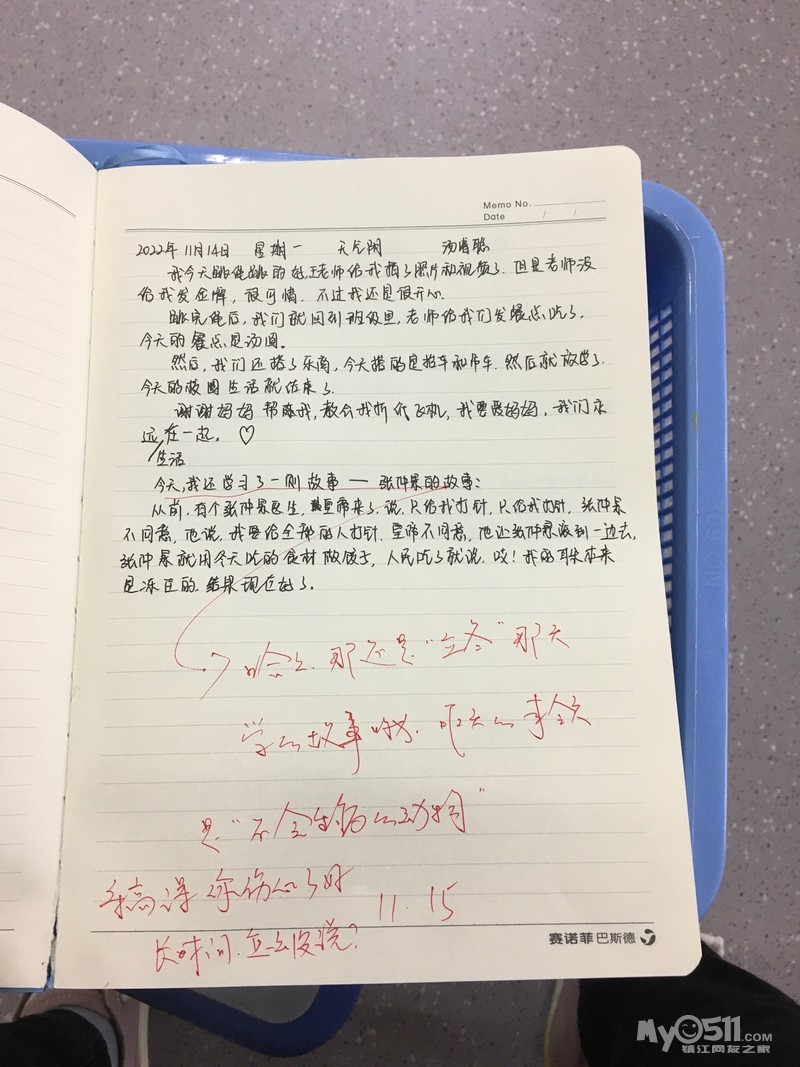 Memo No.
Date / /
2022年 11月14日 星期一 天气阴 汤睿聪
我今天跳绳跳的好,王老师给我拍了照片和视频了.但是老师没
给我发金牌,很可惜.不过我还是很开心.
跳完绳后,我们就回到班级里,老师给我们发餐点吃了.
今天的餐点是汤圆.
然后,我们还搭了乐高,今天搭的是拖车和吊车.然后就放学了.
今天的校园生活就结束了.
谢谢妈妈 帮助我,教会我折纸飞机,我要爱妈妈,我们永
远在一起. ♡
生活
今天,我还学习了一则故事 — 张仲景的故事:
从前,有个张仲景医生,皇帝来了.说.只给我打针,只给我打针,张仲景
不同意,他说,我要给全部的人打针.皇帝不同意,他让张仲景滚到一边去,
张仲景就用今天吃的食材做饺子,人民吃了就说.哎!我的耳朵本来
是冻巨的.结果现在好了.
哈哈.那还是"立冬"那天
学的故事哦.昨天的事
是"不会生病的动物"
乐高课 你伤心了好
长时间.怎么没说?
11.15
赛诺菲 巴斯德
NO.602
My0511.COM
镇江网友之家